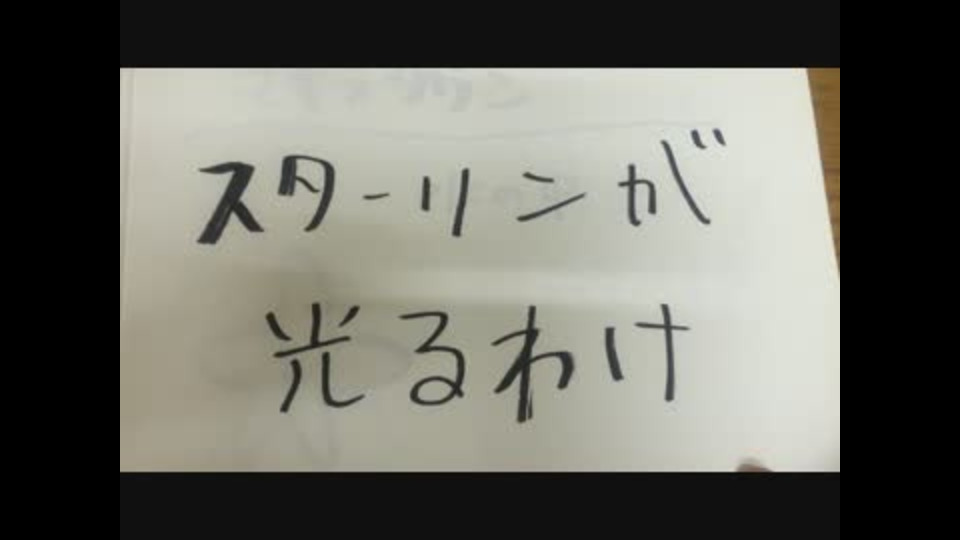 スターリンが
光るわけ